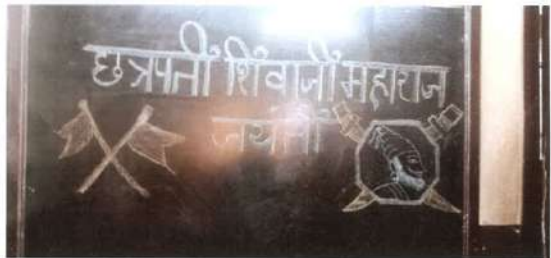 छत्रपती शिवाजी महाराज
जयंती